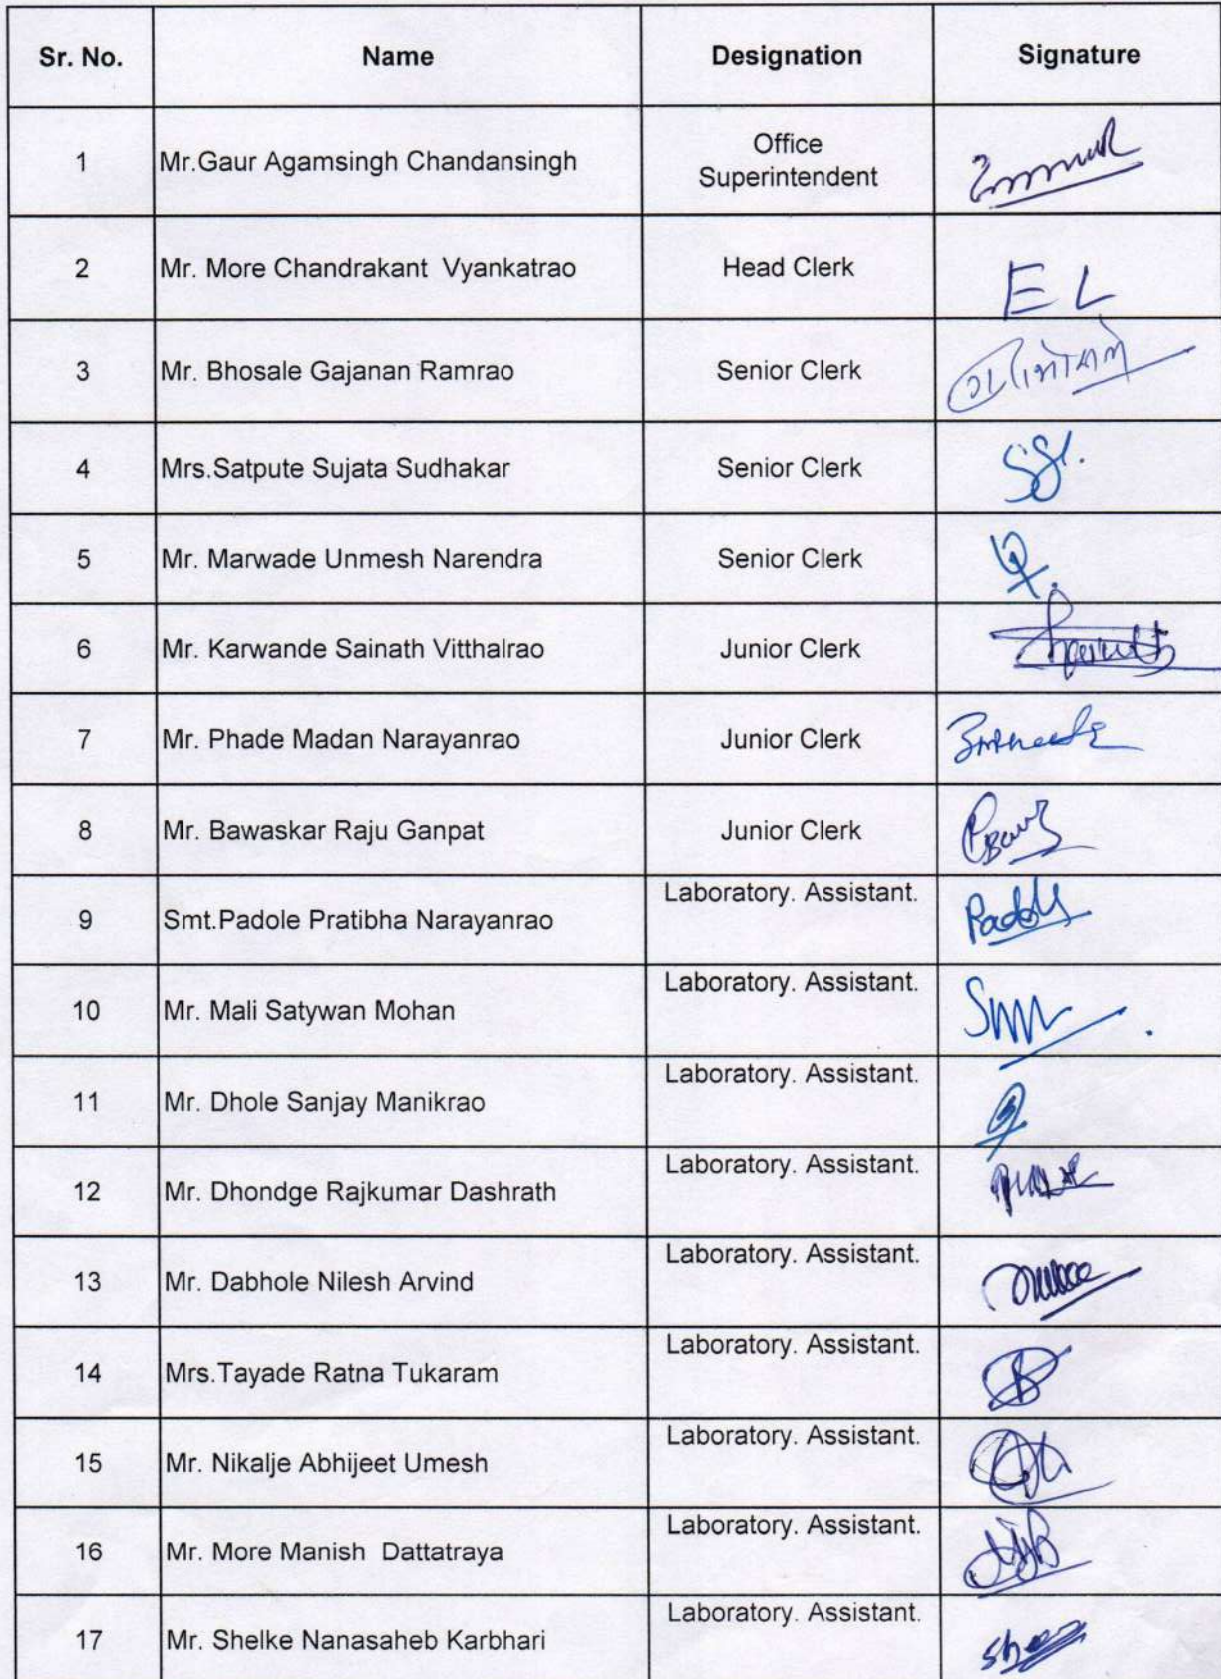 Sr. No. Name Designation Signature
1 Mr.Gaur Agamsingh Chandansingh Office Superintendent
2 Mr. More Chandrakant Vyankatrao Head Clerk EL
3 Mr. Bhosale Gajanan Ramrao Senior Clerk
4 Mrs.Satpute Sujata Sudhakar Senior Clerk
5 Mr. Marwade Unmesh Narendra Senior Clerk
6 Mr. Karwande Sainath Vitthalrao Junior Clerk
7 Mr. Phade Madan Narayanrao Junior Clerk
8 Mr. Bawaskar Raju Ganpat Junior Clerk
9 Smt.Padole Pratibha Narayanrao Laboratory. Assistant.
10 Mr. Mali Satywan Mohan Laboratory. Assistant.
11 Mr. Dhole Sanjay Manikrao Laboratory. Assistant.
12 Mr. Dhondge Rajkumar Dashrath Laboratory. Assistant.
13 Mr. Dabhole Nilesh Arvind Laboratory. Assistant.
14 Mrs.Tayade Ratna Tukaram Laboratory. Assistant.
15 Mr. Nikalje Abhijeet Umesh Laboratory. Assistant.
16 Mr. More Manish Dattatraya Laboratory. Assistant.
17 Mr. Shelke Nanasaheb Karbhari Laboratory. Assistant.